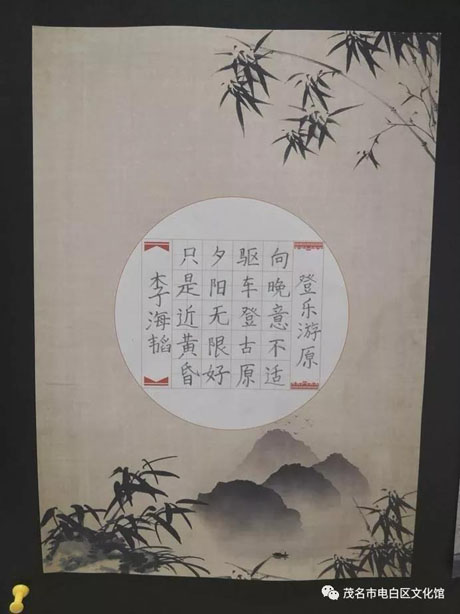 登乐游原
向晚意不适
驱车登古原
夕阳无限好
只是近黄昏
李海韬
茂名市电白区文化馆